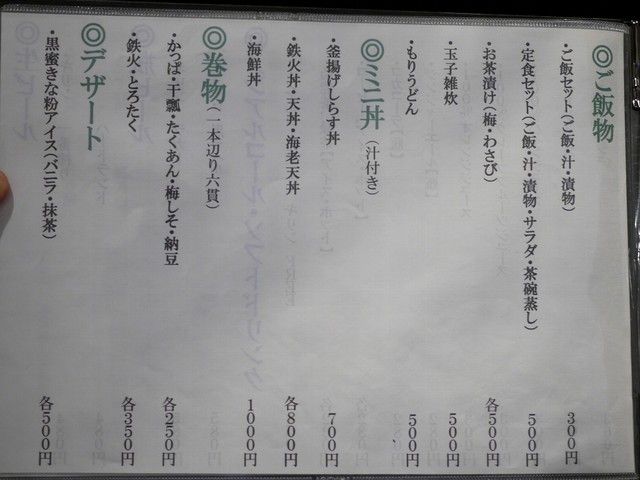 ◎ご飯物
・ご飯セット(ご飯・汁・漬物) 300円
・定食セット(ご飯・汁・漬物・サラダ・茶碗蒸し) 500円
・お茶漬け(梅・わさび) 各500円
・玉子雑炊 500円
・もりうどん 500円
◎ミニ丼(汁付き)
・釜揚げしらす丼 700円
・鉄火丼・天丼・海老天丼 各800円
・海鮮丼 1000円
◎巻物(一本辺り六貫)
・かっぱ・干瓢・たくあん・梅しそ・納豆 各250円
・鉄火・とろたく 各350円
◎デザート
・黒蜜きな粉アイス(バニラ・抹茶) 各500円